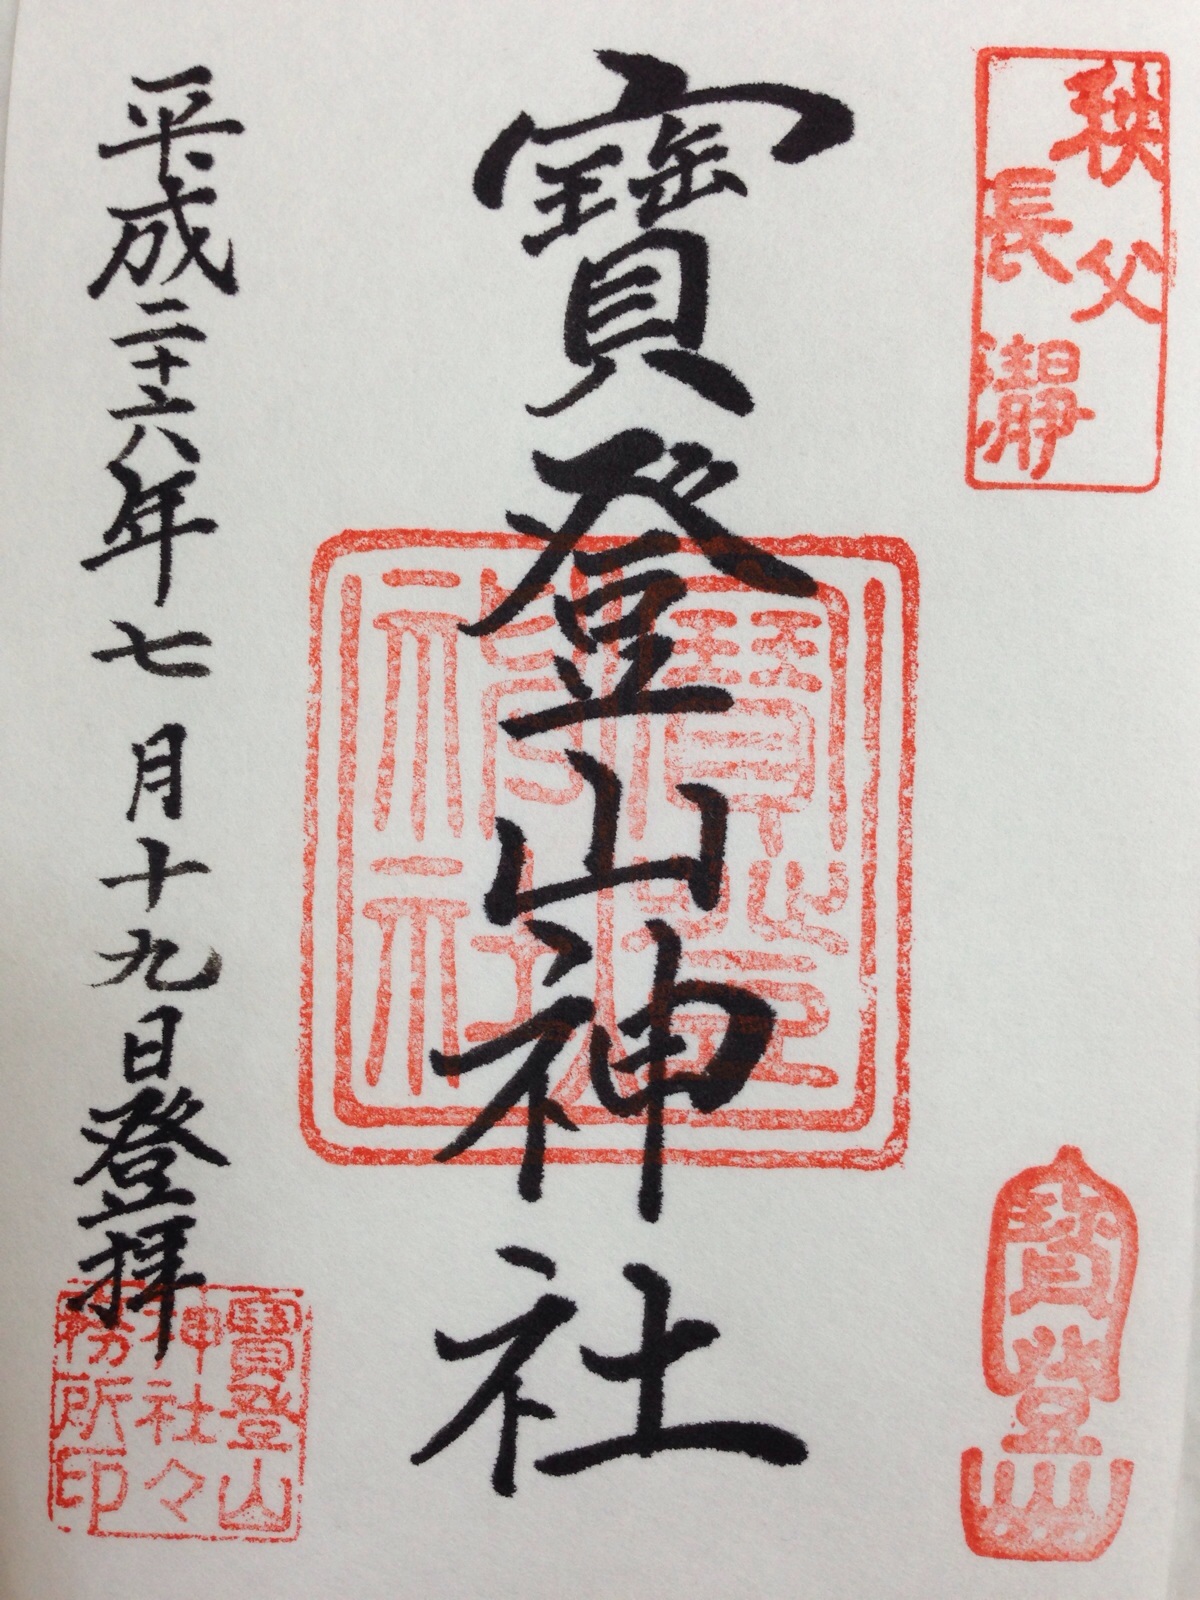 秩父
長瀞
寶登山
寶登山神社
寶登山
神社
平成二十六年七月十九日登拝
寶登山
神社々
務所印